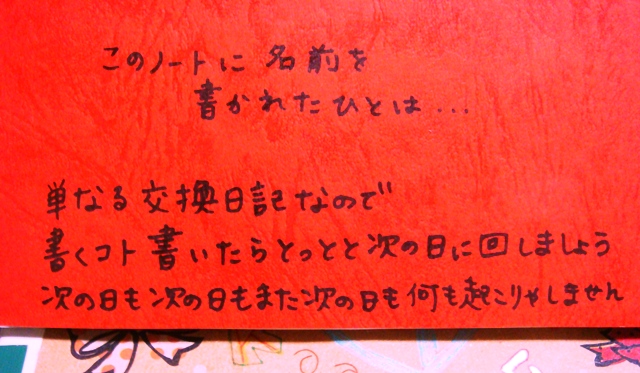 このノートに名前を
書かれたひとは...
単なる交換日記なので
書くコト書いたらとっとと次の日に回しましょう
次の日も次の日もまた次の日も何も起こりゃしません